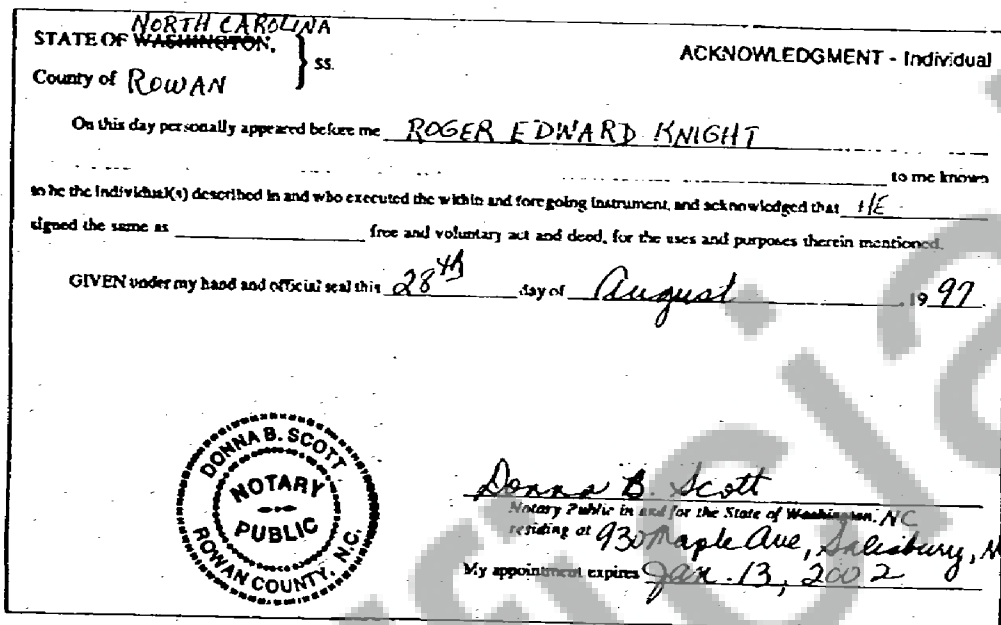 NORTH CAROLINA
STATE OF WASHINGTON,
ss.
County of ROWAN
ACKNOWLEDGMENT - Individual
On this day personally appeared before me ROGER EDWARD KNIGHT
to me known
to be the individual(s) described in and who executed the within and foregoing instrument, and acknowledged that HE
signed the same as free and voluntary act and deed, for the uses and purposes therein mentioned.
GIVEN under my hand and official seal this 28th day of August, 1997
DONNA B. SCOTT
NOTARY
PUBLIC
ROWAN COUNTY, N.C.
Donna B. Scott
Notary Public in and for the State of Washington, NC
residing at 930 Maple Ave, Salisbury, N
My appointment expires Jan. 13, 2002